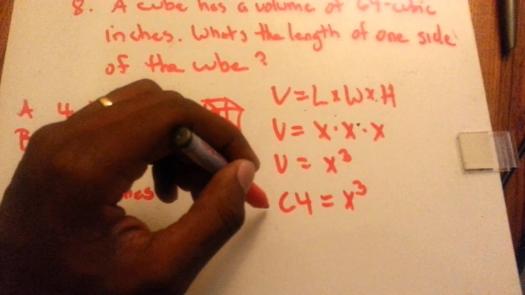 8. A cube has a volume of 64-cubic
inches. Whats the length of one side
of the cube?
A 4
B
V=LxWxH
V= x·x·x
V= x³
64 = x³